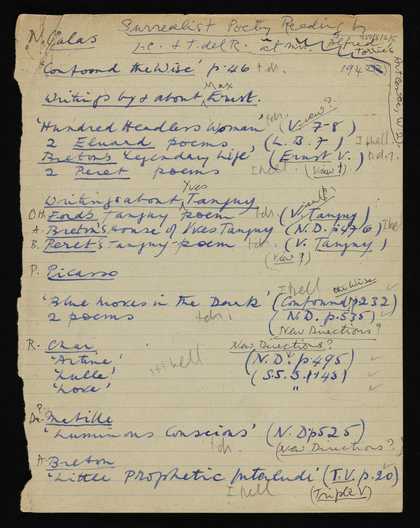 Surrealist Poetry Reading by
N. Calas
I.C. + T. del R. at Mr. Alfred
'Confound the Wise' p. 46 t.d.r. 194
Writings by & about Max Ernst.
'Hundred Headless Woman' t.d.r. (V. 7-8) View?
2 Eluard poems (L.B. 7) I hell
Breton's Legendary Life' (Ernst V.) t.d.r.
2 Peret poems I hell (View?)
Writings about Yves Tanguy
Ford's Tanguy poem t.d.r. (V. Tanguy) View?
A. Breton's House of Yves Tanguy (N.D. p 476) I hell
B. Peret's Tanguy poem t.d.r. (V. Tanguy)
(View?)
P. Picasso
I hell the Wise
'Blue boxes in the Dark' (Confound p 232)
2 poems t.d.r. (N.D. p. 535)
(New Directions?
R. Char New Directions?
'Artine' (N.D. p. 495)
'Lulle' I hell (S.S. p 143)
'Love' "
? Metille
'Luminous Conscious' (N.D. p 525)
t.d.r. (New Directions?)
A. Breton
'Little Prophetic Interlude' (T.V. p. 20)
I hell (Triple V)